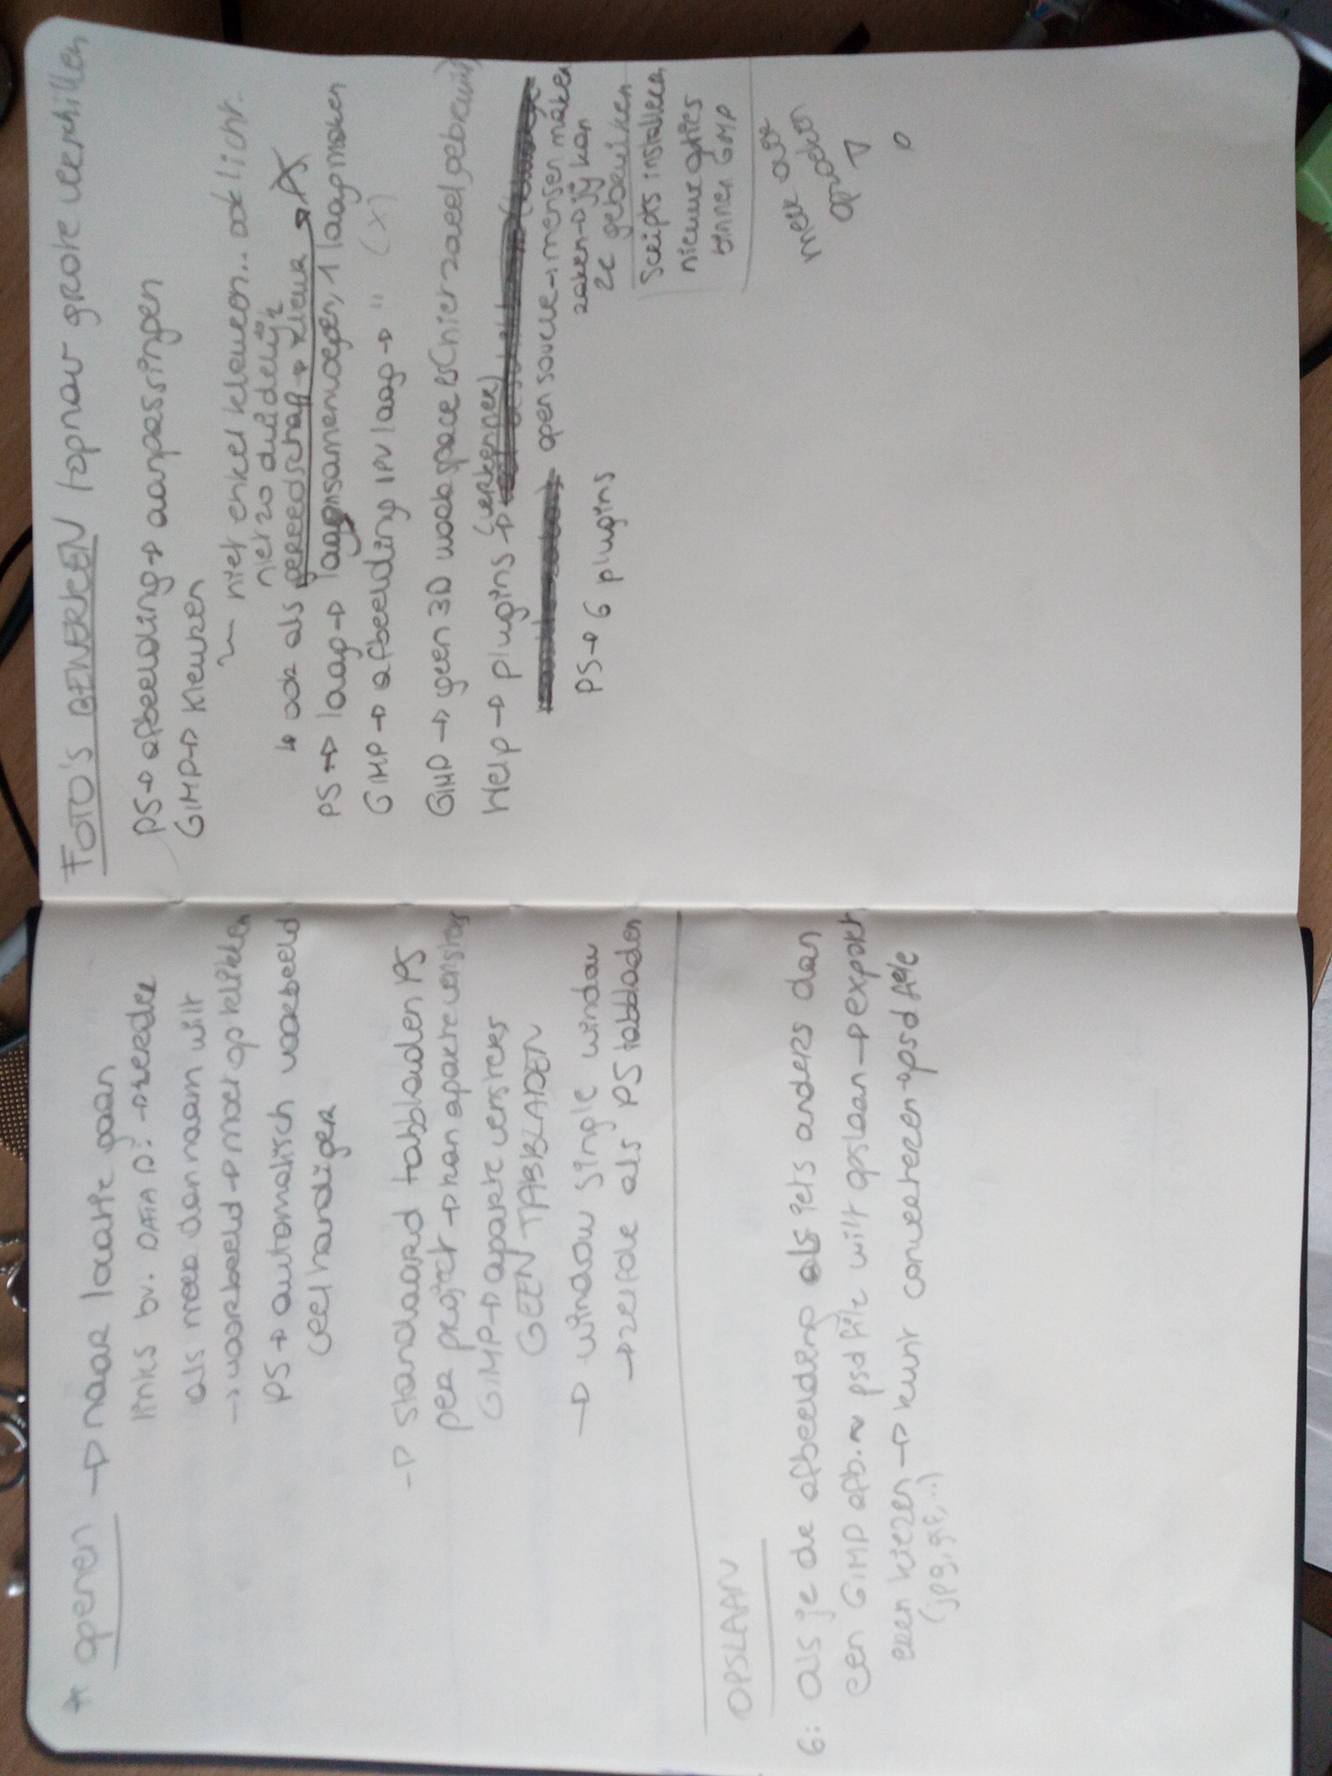 * openen → naar locatie gaan
links bv. DATA D: → verder
als meer dan naam wilt
→ voorbeeld → moet op klikken
PS → automatisch voorbeeld
veel handiger
→ standaard tabbladen PS
per project → kan aparte vensters
GIMP → aparte vensters
GEEN TABBLADEN
→ window single window
→ zelfde als PS tabbladen
OPSLAAN
G: als je de afbeelding als iets anders dan
een GIMP afb. ~ psd file wilt opslaan → export
eren kiezen → kunt converteren → psd file
(jpg, gif, ..)
FOTO'S BEWERKEN topnav grote verschillen
PS → afbeelding → aanpassingen
GIMP → Kleuren
~ niet enkel kleuren.. ook licht.
niet zo duidelijk
↳ ook als gereedschap → kleur → PS
PS → laag → lagen samenvoegen, 1 laag maken
GIMP → afbeelding IPV laag → " (X)
GIMP → geen 3D workspace PS (niet zoveel gebruikt)
Help → plugins (verkenner) →
open source → mensen maken
zaken → jij kan
ze gebruiken
PS → 6 plugins
scripts installeren
nieuwe opties
binnen GIMP
meer over
opzoeken